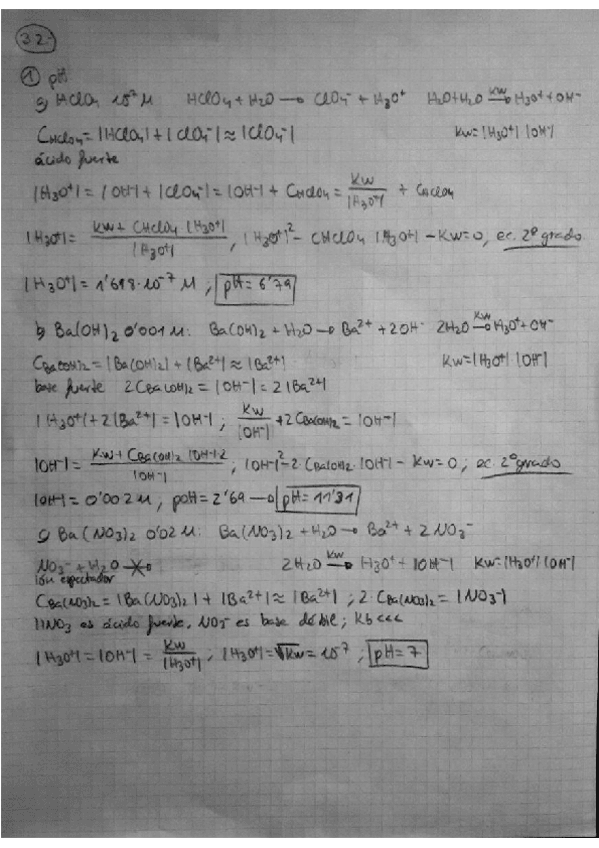 3.2.-
① pH
a) HClO4 10^-7 M    HClO4 + H2O → ClO4^- + H3O^+    H2O + H2O →(Kw) H3O^+ + OH^-
C_HClO4 = |HClO4| + |ClO4^-| ≈ |ClO4^-|    Kw = |H3O^+| |OH^-|
ácido fuerte
|H3O^+| = |OH^-| + |ClO4^-| = |OH^-| + C_HClO4 = Kw/|H3O^+| + C_HClO4
|H3O^+| = (Kw + C_HClO4 |H3O^+|)/|H3O^+| , |H3O^+|^2 - C_HClO4 |H3O^+| - Kw = 0, ec. 2º grado
|H3O^+| = 1'618·10^-7 M ; pH = 6'79
b) Ba(OH)2 0'001 M: Ba(OH)2 + H2O → Ba^2+ + 2OH^-    2H2O →(Kw) H3O^+ + OH^-
C_Ba(OH)2 = |Ba(OH)2| + |Ba^2+| ≈ |Ba^2+|    Kw = |H3O^+| |OH^-|
base fuerte 2 C_Ba(OH)2 = |OH^-| = 2|Ba^2+|
|H3O^+| + 2|Ba^2+| = |OH^-| ; Kw/|OH^-| + 2 C_Ba(OH)2 = |OH^-|
|OH^-| = (Kw + C_Ba(OH)2 |OH^-|·2)/|OH^-| ; |OH^-|^2 - 2 C_Ba(OH)2 |OH^-| - Kw = 0 ; ec. 2º grado
|OH^-| = 0'002 M ; pOH = 2'69 → pH = 11'31
c) Ba(NO3)2 0'02 M: Ba(NO3)2 + H2O → Ba^2+ + 2 NO3^-
NO3^- + H2O    2H2O →(Kw) |H3O^+| + |OH^-|    Kw = |H3O^+| |OH^-|
ión espectador
C_Ba(NO3)2 = |Ba(NO3)2| + |Ba^2+| ≈ |Ba^2+| ; 2·C_Ba(NO3)2 = |NO3^-|
HNO3 es ácido fuerte, NO3^- es base débil ; Kb <<<
|H3O^+| = |OH^-| = Kw/|H3O^+| ; |H3O^+| = √Kw = 10^-7 ; pH = 7